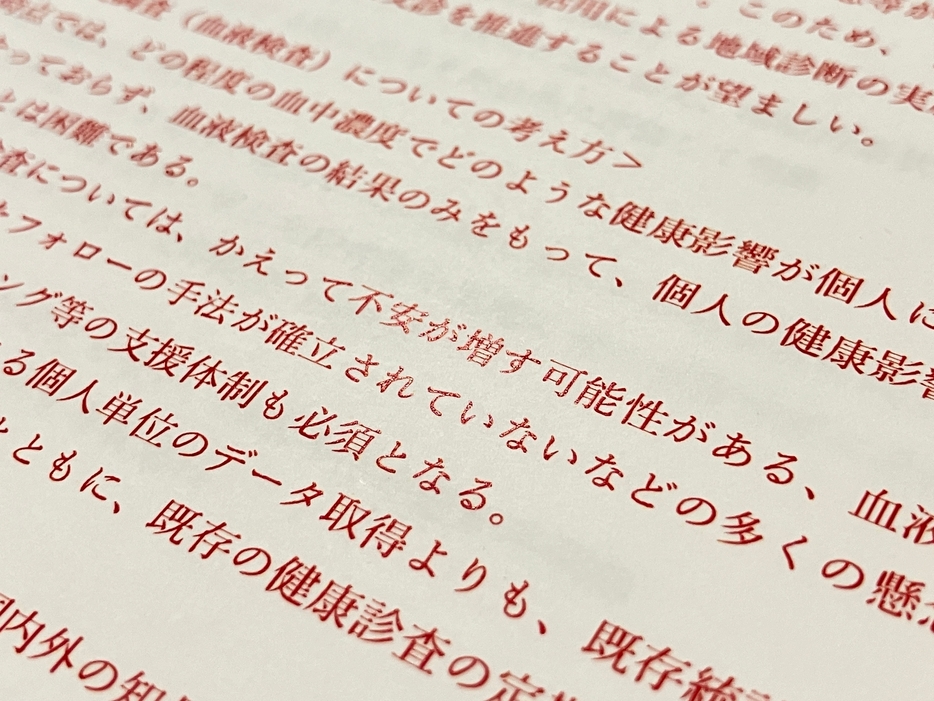 このため、
活用による地域診断の実
診を推進することが望ましい。
（血液検査）についての考え方＞
では、どの程度の血中濃度でどのような健康影響が個人に
っておらず、血液検査の結果のみをもって、個人の健康影響
とは困難である。
査については、かえって不安が増す可能性がある、血液
フォローの手法が確立されていないなどの多くの懸念
ング等の支援体制も必須となる。
る個人単位のデータ取得よりも、既存統計
とともに、既存の健康診査の定
国内外の知